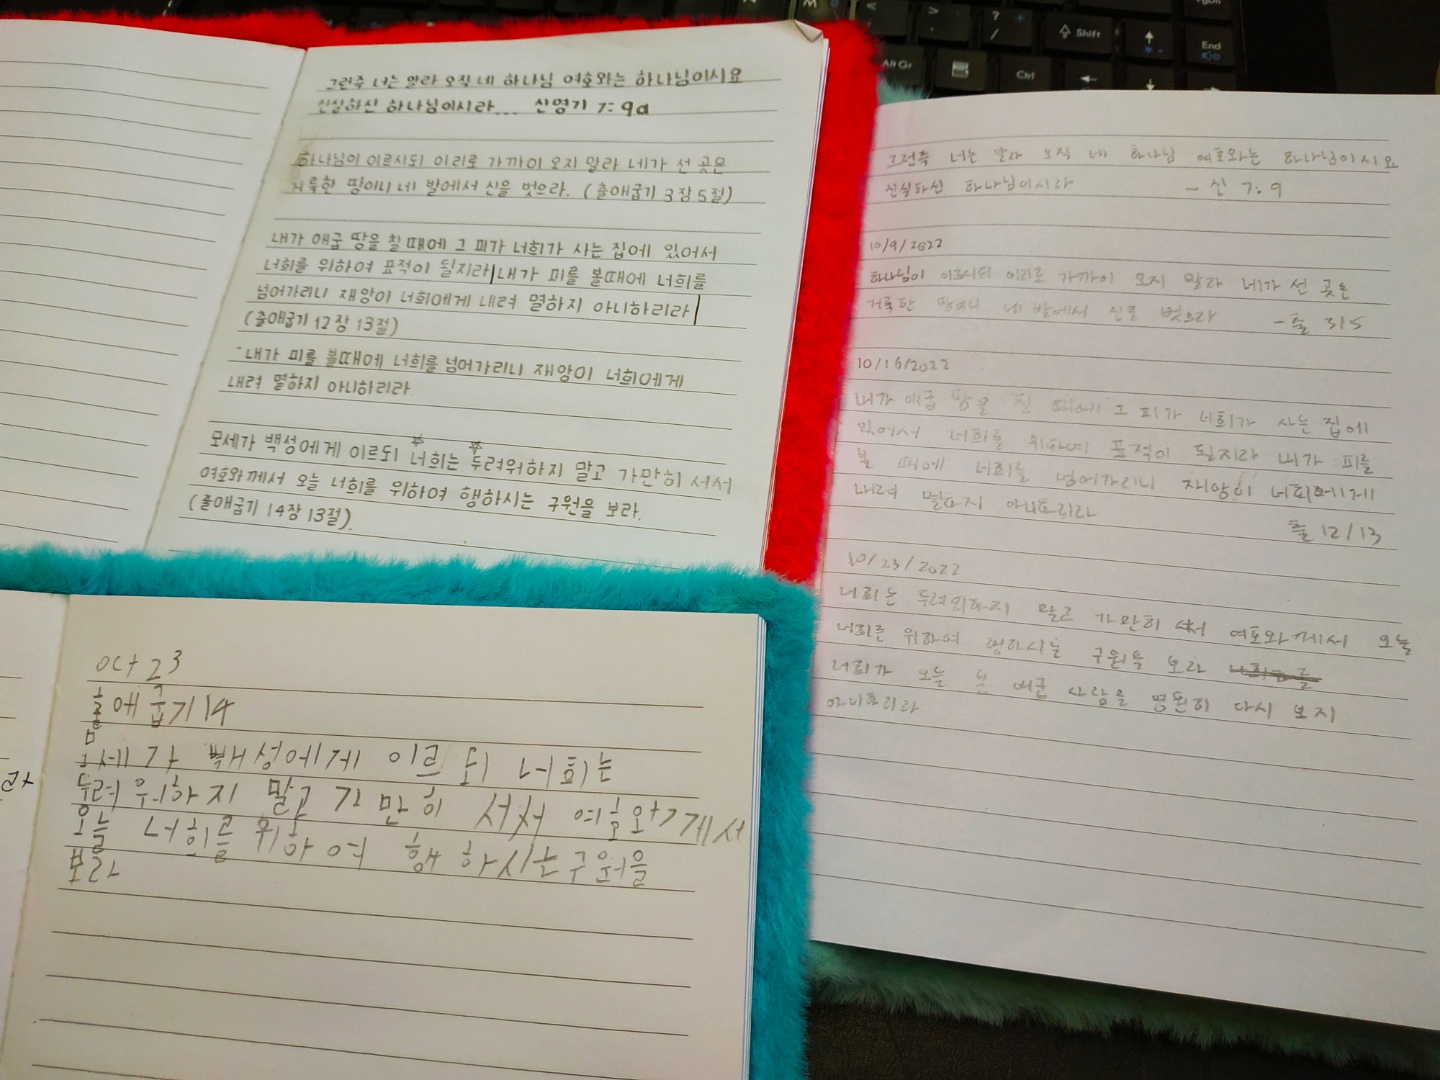 그런즉 너는 알라 오직 네 하나님 여호와는 하나님이시요
신실하신 하나님이시라... 신명기 7:9a
하나님이 이르시되 이리로 가까이 오지 말라 네가 선 곳은
거룩한 땅이니 네 발에서 신을 벗으라. (출애굽기 3장 5절)
내가 애굽 땅을 칠 때에 그 피가 너희가 사는 집에 있어서
너희를 위하여 표적이 될지라 내가 피를 볼때에 너희를
넘어가리니 재앙이 너희에게 내려 멸하지 아니하리라
(출애굽기 12장 13절)
내가 피를 볼때에 너희를 넘어가리니 재앙이 너희에게
내려 멸하지 아니하리라
모세가 백성에게 이르되 너희는 두려워하지 말고 가만히 서서
여호와께서 오늘 너희를 위하여 행하시는 구원을 보라.
(출애굽기 14장 13절)
그런즉 너는 알라 오직 네 하나님 여호와는 하나님이시요
신실하신 하나님이시라 - 신 7:9
10/9/2022
하나님이 이르시되 이리로 가까이 오지 말라 네가 선 곳은
거룩한 땅이니 네 발에서 신을 벗으라 - 출 3/5
10/16/2022
내가 애굽 땅을 칠 때에 그 피가 너희가 사는 집에
있어서 너희를 위하여 표적이 될지라 내가 피를
볼 때에 너희를 넘어가리니 재앙이 너희에게
내려 멸하지 아니하리라 출 12/13
10/23/2022
너희는 두려워하지 말고 가만히 서서 여호와께서 오늘
너희를 위하여 행하시는 구원을 보라
너희가 오늘 본 애굽 사람을 영원히 다시 보지
아니하리라
oct 23
출애굽기 14
모세가 백성에게 이르되 너희는
두려워하지 말고 가만히 서서 여호와께서
오늘 너희를 위하여 행하시는 구원을
보라
Alt Gr
Ctrl
Shift
End